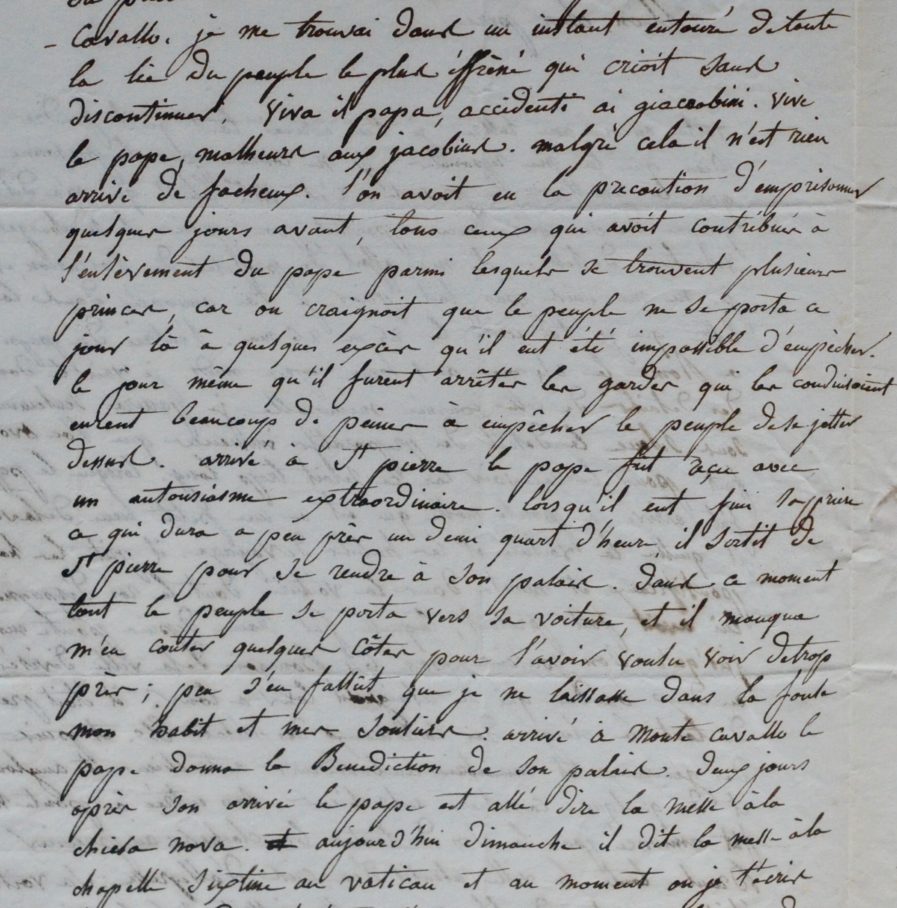 Cavallo. je me trouvai dans un instant entouré de toute
la lie du peuple le plus éffréné qui crioit sans
discontinuer, viva il papa, accidenti ai giacrobini. vive
le pape, malheurs aux jacobins. malgré cela il n'est rien
arrivé de facheux. l'on avoit eu la precaution d'emprisonner
quelques jours avant, tous ceux qui avoit contribués à
l'enlèvement du pape parmi lesquels se trouvent plusieurs
princes, car on craignoit que le peuple ne se porta ce
jour là à quelques excès qu'il eut été impossible d'empêcher.
le jour même qu'il furent arrêttés les gardes qui les conduisoient
eurent beaucoups de peines à empêcher le peuple de se jetter
dessus. arrivé à St pierre le pape fut reçu avec
un antousiasme extraordinaire. lorsqu'il eut fini sa priere
ce qui dura a peu près un demi quart d'heure, il sortit de
St pierre pour se rendre à son palais. dans ce moment
tout le peuple se porta vers sa voiture, et il manqua
m'en couter quelques côtes pour l'avoir voulu voir de trop
près; peu s'en fallut que je ne laissasse dans la foule
mon habit et mes souliers. arrivé à Monte cavallo le
pape donna la Benediction de son palais. deux jours
après son arrivé le pape est allé dire la messe à la
chiesa nova. et aujourd'hui dimanche il dit la messe à la
chapelle sixtine au vatican et au moment ou je t'écris